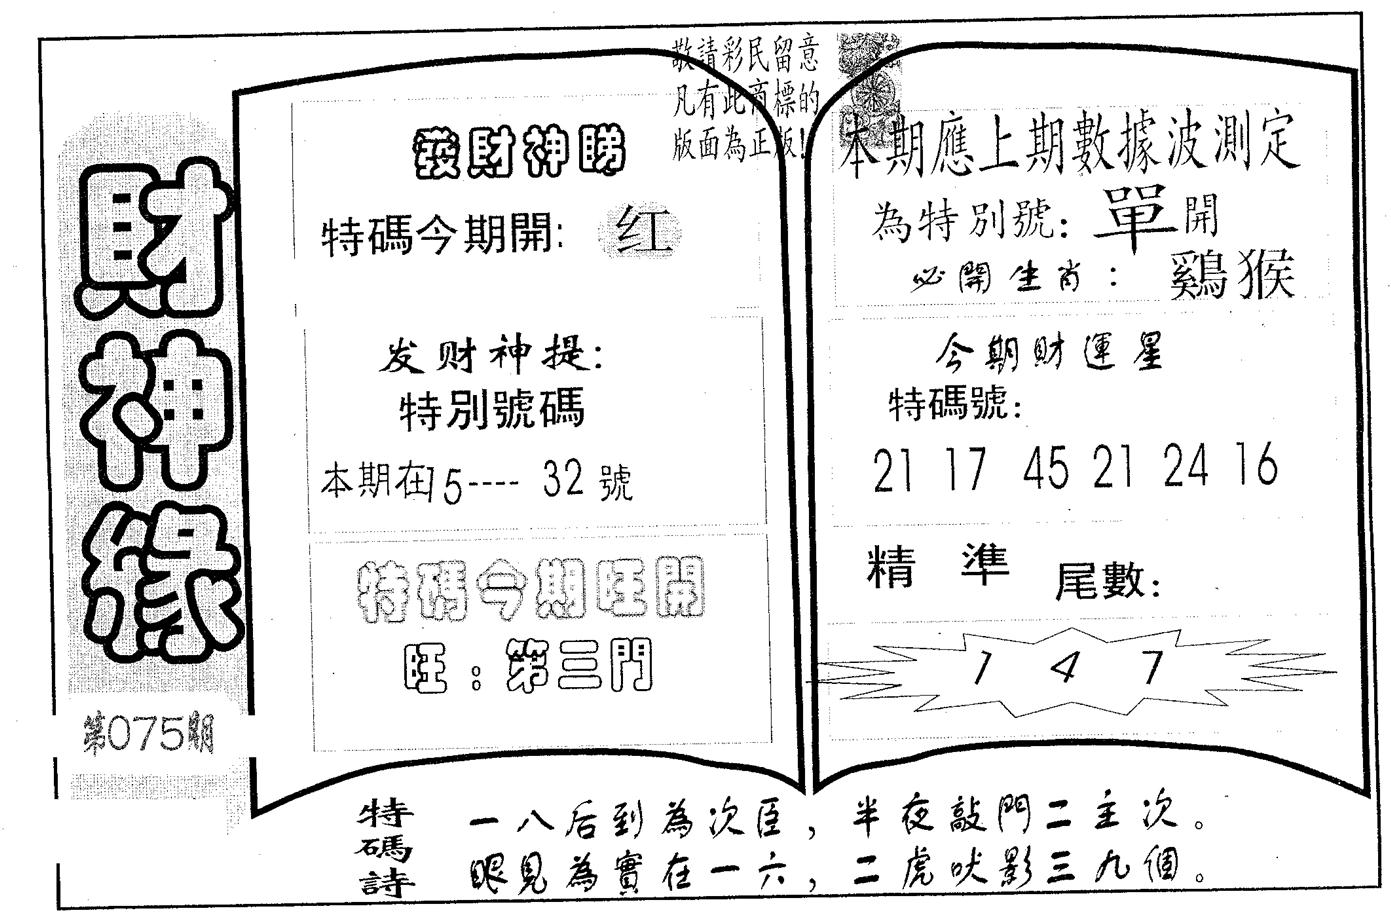 財神緣
第075期
敬請彩民留意
凡有此商標的
版面為正版!
發財神睇
特碼今期開: 红
发财神提:
特別號碼
本期在15---- 32 號
特碼今期旺開
旺:第三門
本期應上期數據波測定
為特別號: 單開
必開生肖: 鷄猴
今期財運星
特碼號:
21 17 45 21 24 16
精 準 尾數:
1 4 7
特碼詩
一八后到為次臣,半夜敲門二主次。
眼見為實在一六,二虎吠影三九個。